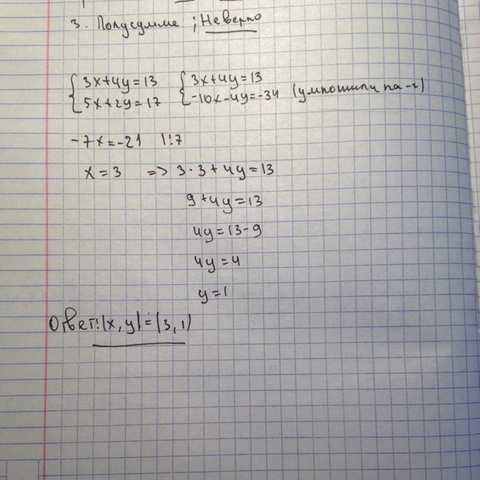 3. Полусумме ; Неверно
{3x+4y=13 {3x+4y=13
{5x+2y=17 {-10x-4y=-34 (умножили на -2)
-7x=-21 |:7
x=3 => 3·3+4y=13
9+4y=13
4y=13-9
4y=4
y=1
Ответ:(x,y)=(3,1)